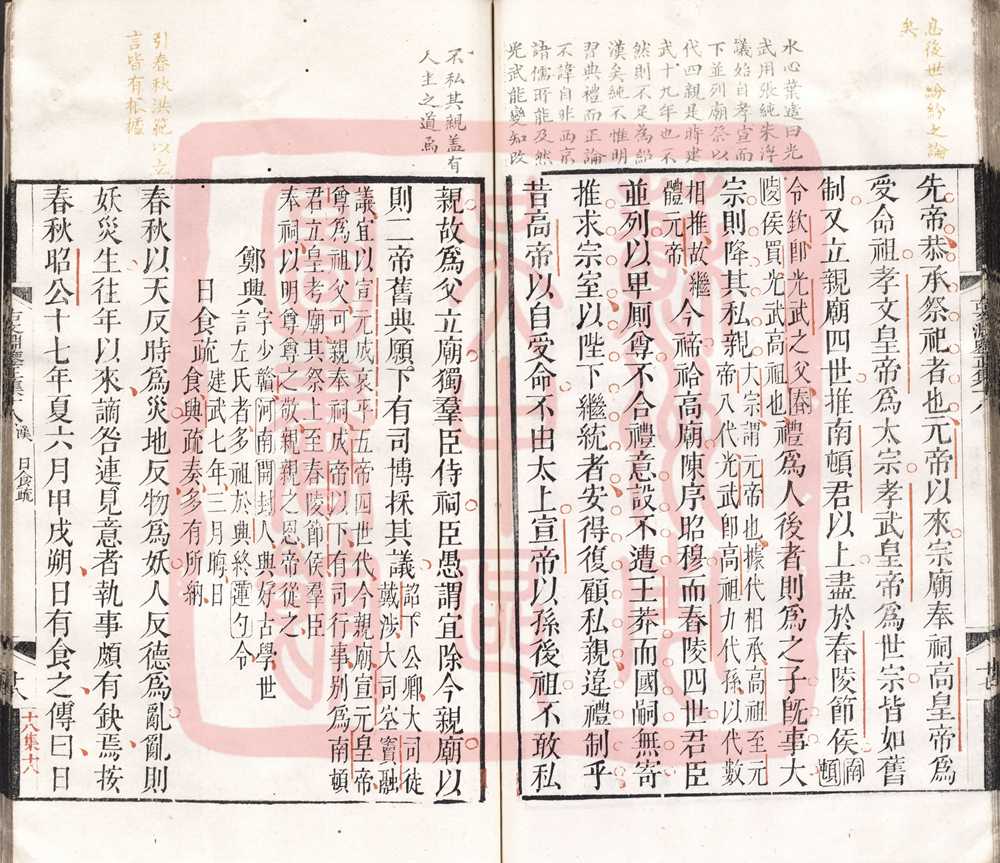 息後世紛紛之論
矣
水心葉適曰光
武用張純朱浮
議始自孝宣而
下並列廟祭以
代四親是時建
武十九年也不
然則不足為紹
漢矣純不惟明
習典禮而正論
不諱自非西京
諸儒所能及然
光武能變知改
先帝恭承祭祀者也元帝以來宗廟奉祠高皇帝爲
受命祖孝文皇帝爲太宗孝武皇帝爲世宗皆如舊
制又立親廟四世推南頓君以上盡於舂陵節侯南頓
令欽卽光武之父舂
陵侯買光武高祖也禮爲人後者則爲之子旣事大
宗則降其私親大宗謂元帝也據代相承高祖至元
帝八代光武卽高祖九代孫以代數
相推故繼
體元帝今禘祫高廟陳序昭穆而舂陵四世君臣
並列以卑厠尊不合禮意設不遭王莽而國嗣無寄
推求宗室以陛下繼統者安得復顧私親違禮制乎
昔高帝以自受命不由太上宣帝以孫後祖不敢私
不私其親盖有
人主之道焉
親故爲父立廟獨羣臣侍祠臣愚謂宜除今親廟以
則二帝舊典願下有司博採其議詔下公卿大司徒
戴涉大司空竇融
議宜以宣元成哀平五帝四世代今親廟宣元皇帝
尊爲祖父可親奉祠成帝以下有司行事别爲南頓
君立皇考廟其祭上至舂陵節侯羣臣
奉祠以明尊尊之敬親親之恩帝從之
鄭興字少贛河南開封人興好古學世
言左氏者多祖於興終蓮勺令
日食疏建武七年三月晦日
食興疏奏多有所納
引春秋洪範以立
言皆有根據
春秋以天反時爲災地反物爲妖人反德爲亂亂則
妖災生往年以來謫咎連見意者執事頗有缺焉按
春秋昭公十七年夏六月甲戌朔日有食之傳曰日
漢
日食疏
十八集十六